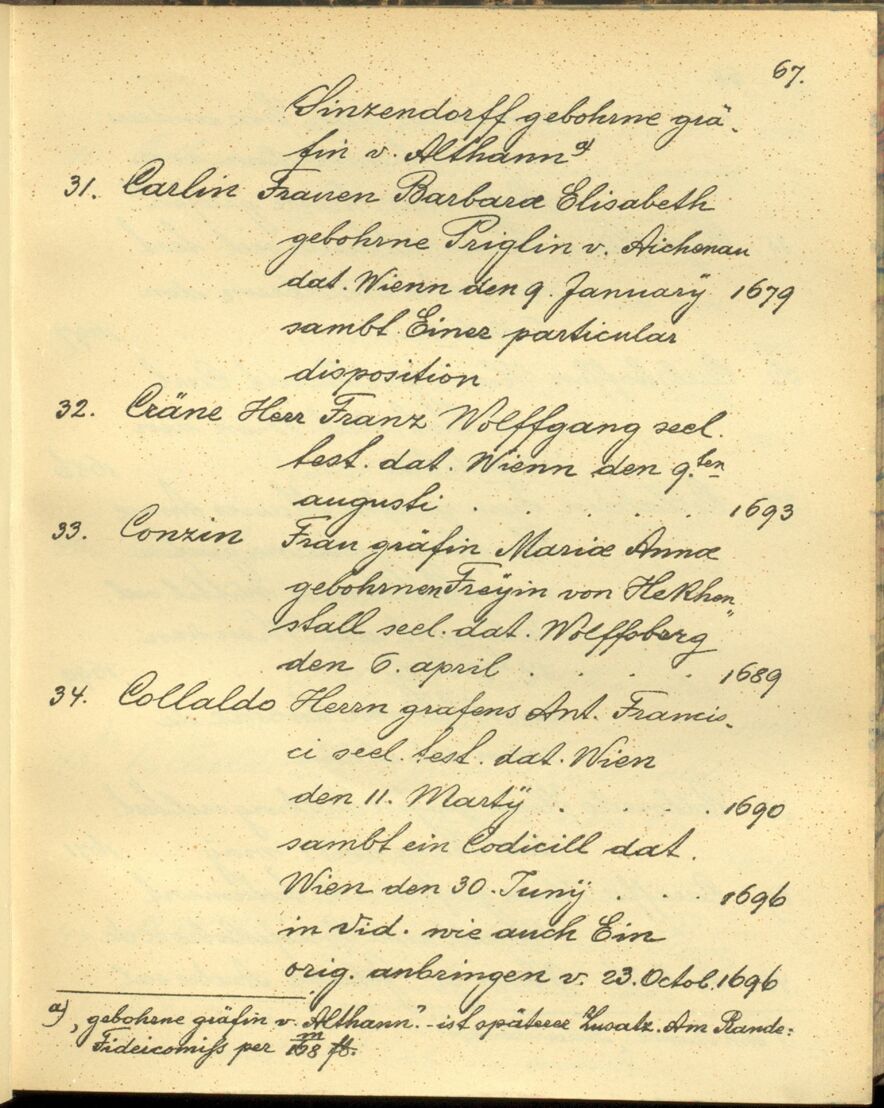 67.
Sinzendorff gebohrne grä-
fin v. Althann a)
31. Carlin Frauen Barbaræ Elisabeth
gebohrne Priglin v. Aichenau
dat. Wienn den 9. Januarÿ 1679
sambt Einer particular
disposition
32. Cräne Herr Franz Wolffgang seel.
test. dat. Wienn den 9.ten
augusti . . . . . 1693
33. Conzin Frau gräfin Mariæ Annæ
gebohrnen Freÿin von Hekhen„
stall seel. dat. Wolffsberg
den 6. april . . . . 1689
34. Collaldo Herrn grafens Ant. Francis-
ci seel. test. dat. Wien
den 11. Martÿ . . . 1690
sambt ein Codicill dat.
Wien den 30. Junÿ . . . 1696
in vid. wie auch Ein
orig. anbringen v. 23. Octob. 1696
a) „gebohrne gräfin v. Althann“ - ist späterer Zusatz. Am Rande:
Fideicomiſs per m/168 fl.